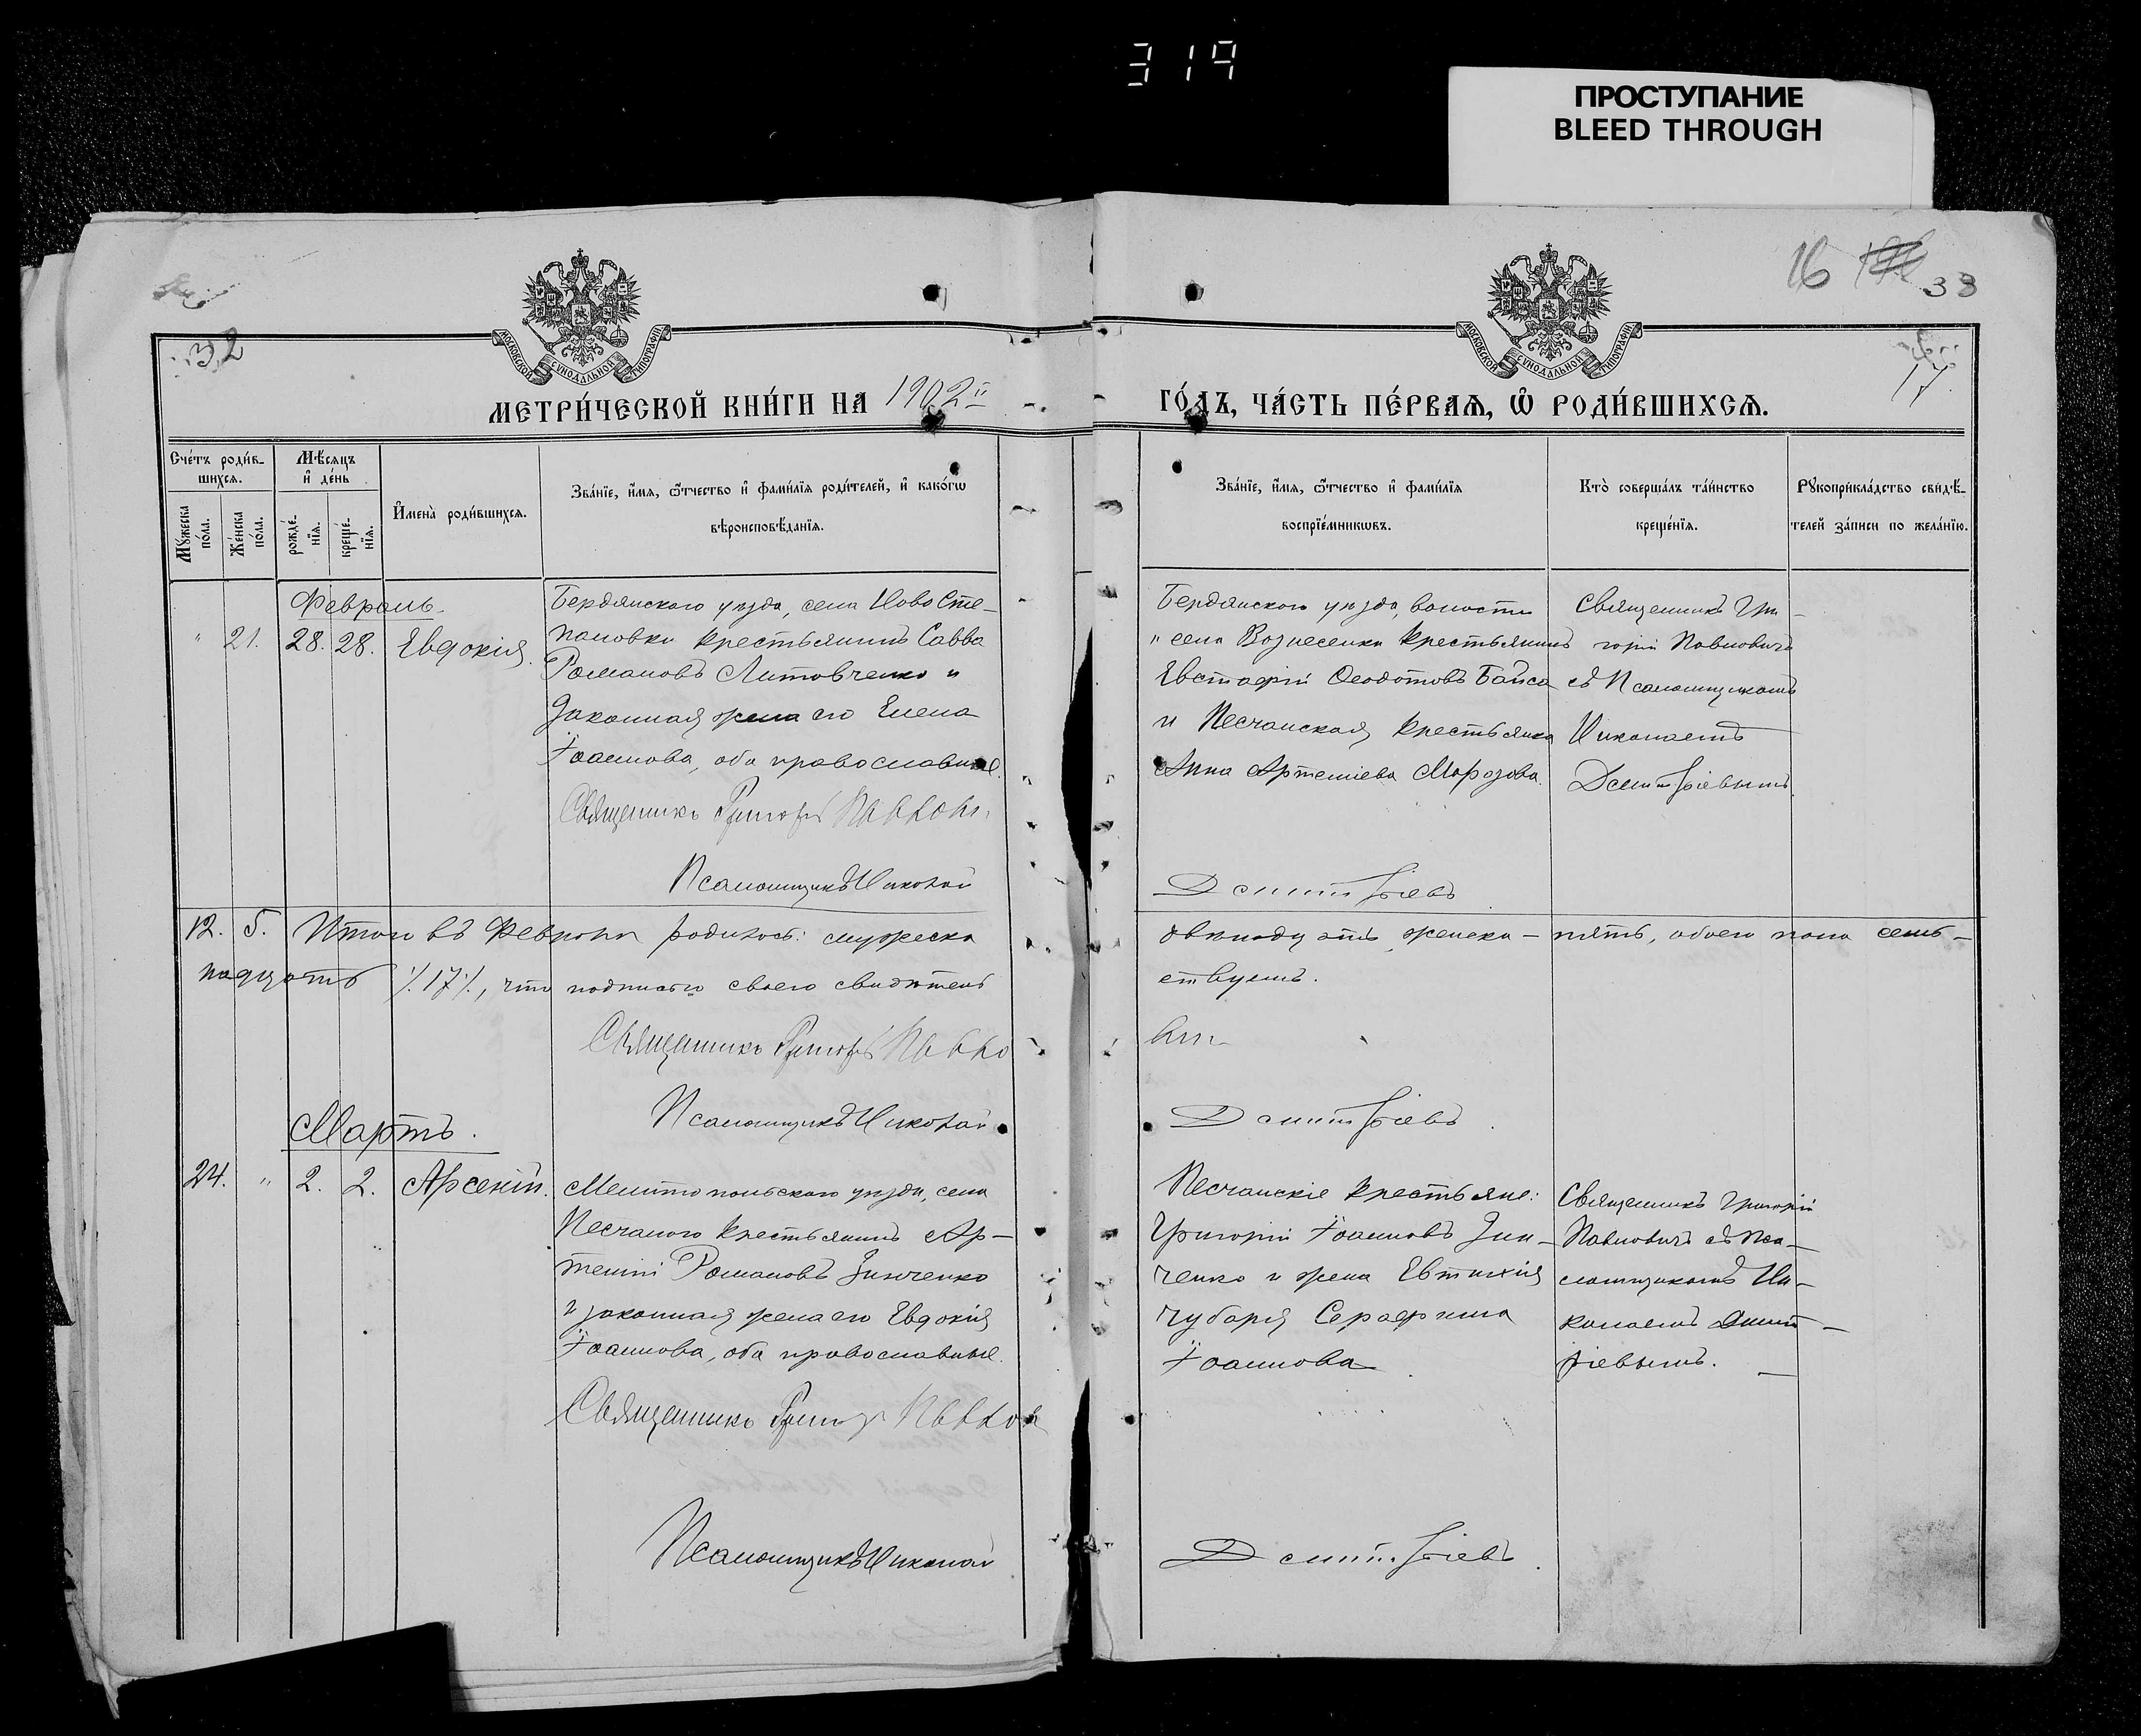 319
ПРОСТУПАНИЕ
BLEED THROUGH
16 33
32
17
МОСКОВСКОЙ СѴНОДАЛЬНОЙ ТИПОГРАФІИ
МОСКОВСКОЙ СѴНОДАЛЬНОЙ ТИПОГРАФІИ
МЕТРИ́ЧЕСКОЙ КНИ́ГИ НА 1902й
ГО́ДЪ, ЧА́СТЬ ПЕ́РВАѦ, Ѡ҆ РОДИ́ВШИХСѦ.
Сче́тъ роди́в-
шихсѧ.
Мѣ́сѧцъ
и҆ де́нь
Мꙋ́жеска
по́ла.
Же́нска
по́ла.
рожде́-
нїѧ.
креще́-
нїѧ.
И҆мена̀ роди́вшихсѧ.
Зва́нїе, и҆́мѧ, ѻ҆́тчество и҆ фами́лїѧ роди́телей, и҆ како́гѡ
вѣроисповѣ́данїѧ.
Зва́нїе, и҆́мѧ, ѻ҆́тчество и҆ фами́лїѧ
воспрїе́мникѡвъ.
Кто̀ соверша́лъ та́инство
креще́нїѧ.
Рꙋкоприкла́дство свидѣ́-
телей за́писи по жела́нїю.
Февраль.
" 21. 28. 28. Евдокія.
Бердянскаго уѣзда, села НовоСте-
пановки крестьянинъ Савва
Романовъ Литовченко и
законная жена его Елена
Іоаннова, оба православные.
Священникъ Григорій Павлович
Псаломщикъ Николай
Бердянскаго уѣзда, волости
" села Вознесенки крестьянинъ
Евстафій Ѳеодотовъ Байса
и Песчанская крестьянка
Анна Артеміева Морозова.
Дмитріевъ
Священникъ Гри-
горій Павловичъ
съ Псаломщикомъ
Николаемъ
Дмитріевымъ.
12. 5. Итого въ Февралѣ родилось: мужеска
двѣнадцать, женска — пять, обоего пола семь-
надцать ⁒17⁒, что подписью своею свидѣтель
ствуемъ.
Священникъ Григорій Павло
вич
Псаломщикъ Николай
Дмитріевъ
Мартъ.
24. " 2. 2. Арсеній.
Мелитопольскаго уѣзда, села
Песчаного крестьянинъ Ар-
темій Романовъ Зинченко
и законная жена его Евдокія
Іоаннова, оба православные.
Священникъ Григор Павлов
Псаломщикъ Николай
Песчанскіе крестьяне:
Григорій Іоанновъ Зин-
ченко и жена Евтихія
Чубаря Серафима
Іоаннова
Дмитріевъ.
Священникъ Григорій
Павловичъ съ Пса-
ломщикомъ Ни-
колаемъ Дмит-
ріевымъ.